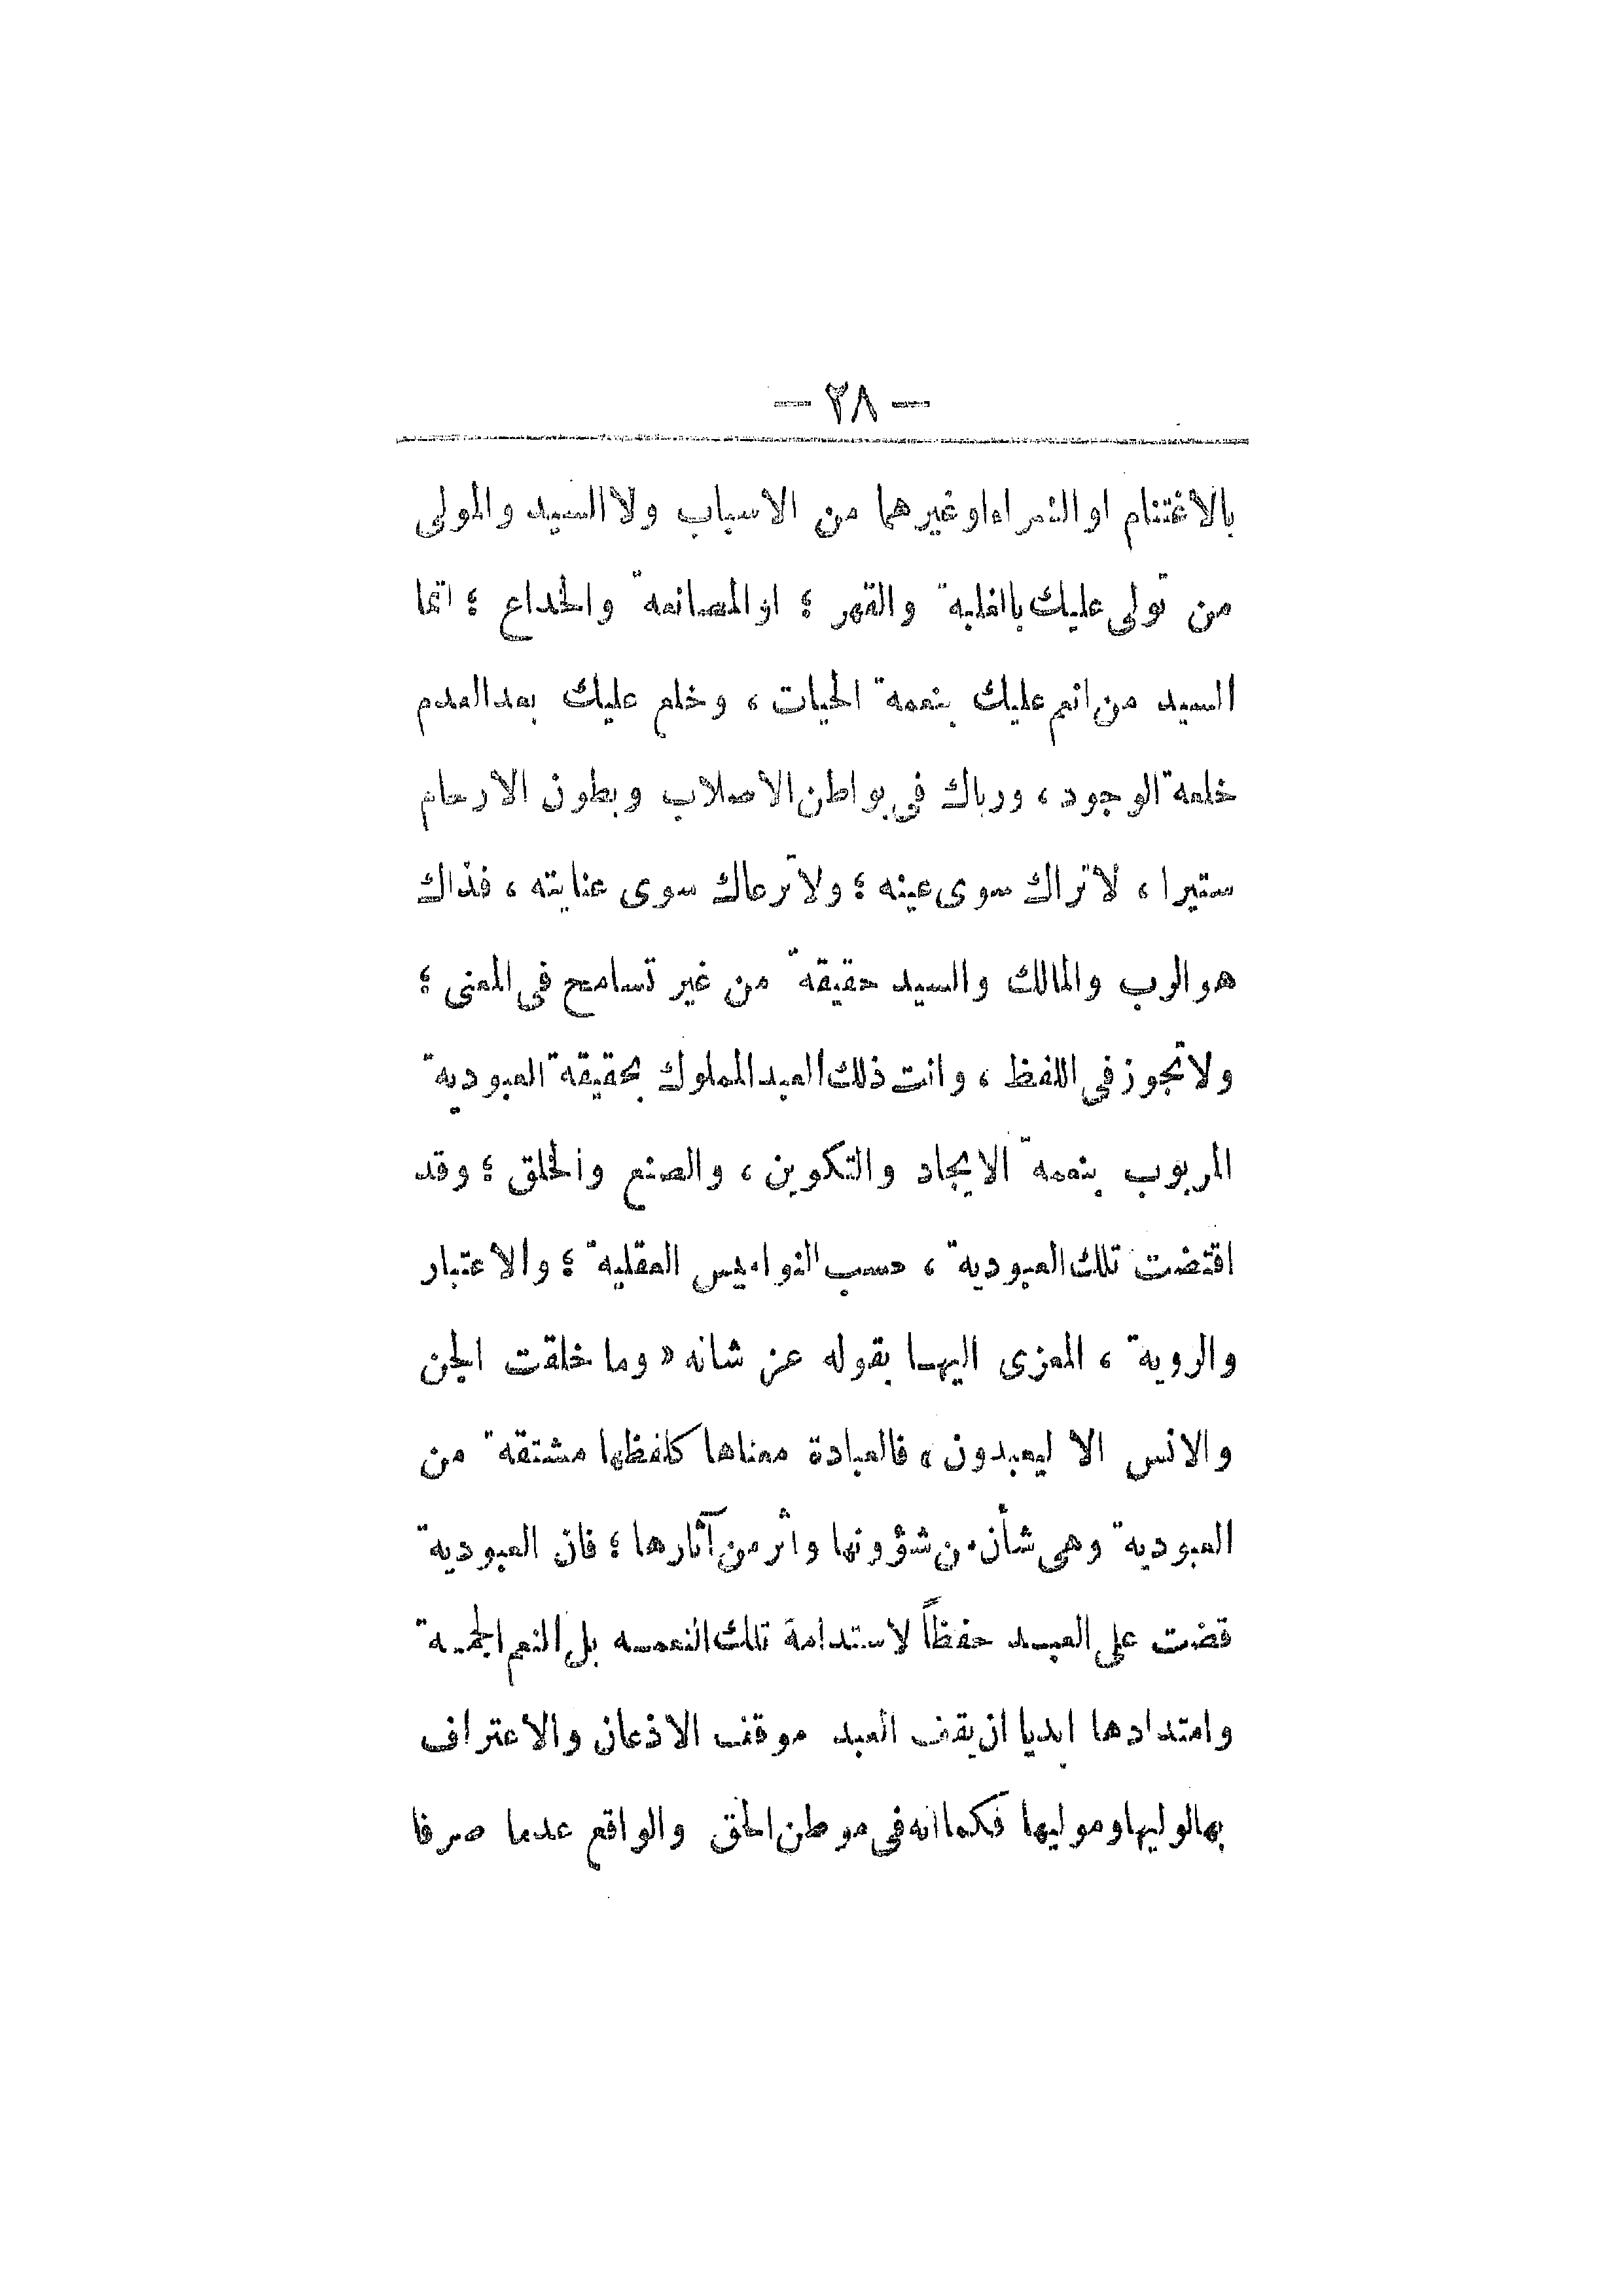 — ٢٨ —
بالاغتنام او الشراء او غيرهما من الاسباب ولا السيد والمولى
من تولى عليك بالغلبة والقهر ؛ او المصانعة والخداع ؛ انما
السيد من انعم عليك بنعمة الحيات ، وخلع عليك بعد العدم
خلعة الوجود ، ورباك في بواطن الاصلاب وبطون الارحام
ستيرا ، لا تراك سوى عينه ؛ ولا ترعاك سوى عنايته ، فذاك
هو الرب والمالك والسيد حقيقة من غير تسامح في المعنى ؛
ولا تجوز في اللفظ ، وانت ذلك العبد المملوك بحقيقة العبودية
المربوب بنعمة الايجاد والتكوين ، والصنع والخلق ؛ وقد
اقتضت تلك العبودية ، حسب النواميس العقلية ؛ والاعتبار
والروية ، المعزى اليها بقوله عز شانه « وما خلقت الجن
والانس الا ليعبدون ، فالعبادة معناها كلفظها مشتقة من
العبودية وهي شأن من شؤونها واثر من آثارها ؛ فان العبودية
قضت على العبد حفظاً لاستدامة تلك النعمه بل النعم الجمة
وامتدادها ابديا ان يقف العبد موقف الاذعان والاعتراف
بها لوليها وموليها فكما انه في موطن الحق والواقع عدما صرفا